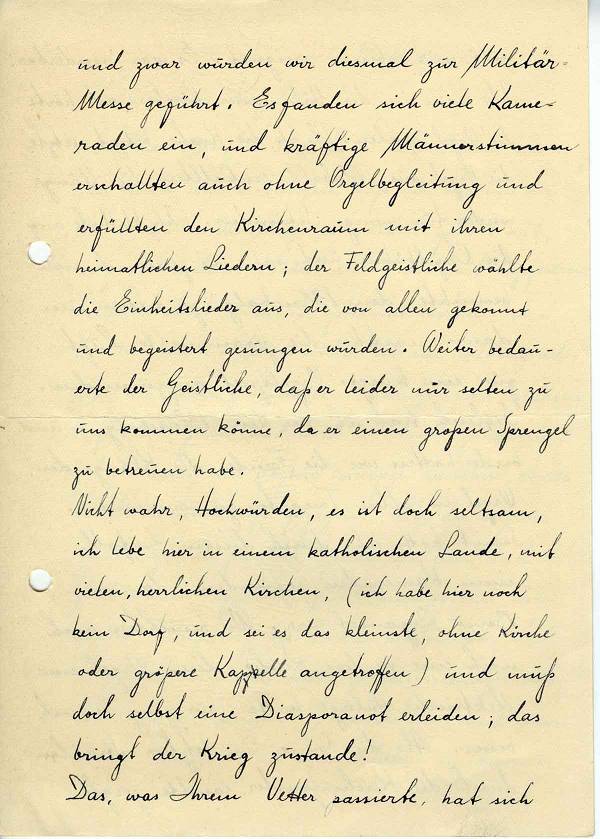 und zwar wurden wir diesmal zur Militär-
Messe geführt. Es fanden sich viele Kame-
raden ein, und kräftige Männerstimmen
erschallten auch ohne Orgelbegleitung und
erfüllten den Kirchenraum mit ihren
heimatlichen Liedern; der Feldgeistliche wählte
die Einheitslieder aus, die von allen gekonnt
und begeistert gesungen wurden. Weiter bedau-
erte der Geistliche, daß er leider nur selten zu
uns kommen könne, da er einen großen Sprengel
zu betreuen habe.
Nicht wahr, Hochwürden, es ist doch seltsam,
ich lebe hier in einem katholischen Lande, mit
vielen, herrlichen Kirchen, (ich habe hier noch
kein Dorf, und sei es das kleinste, ohne Kirche
oder größere Kappelle angetroffen) und muß
doch selbst eine Diasporanot erleiden; das
bringt der Krieg zustande!
Das, was Ihrem Vetter passierte, hat sich